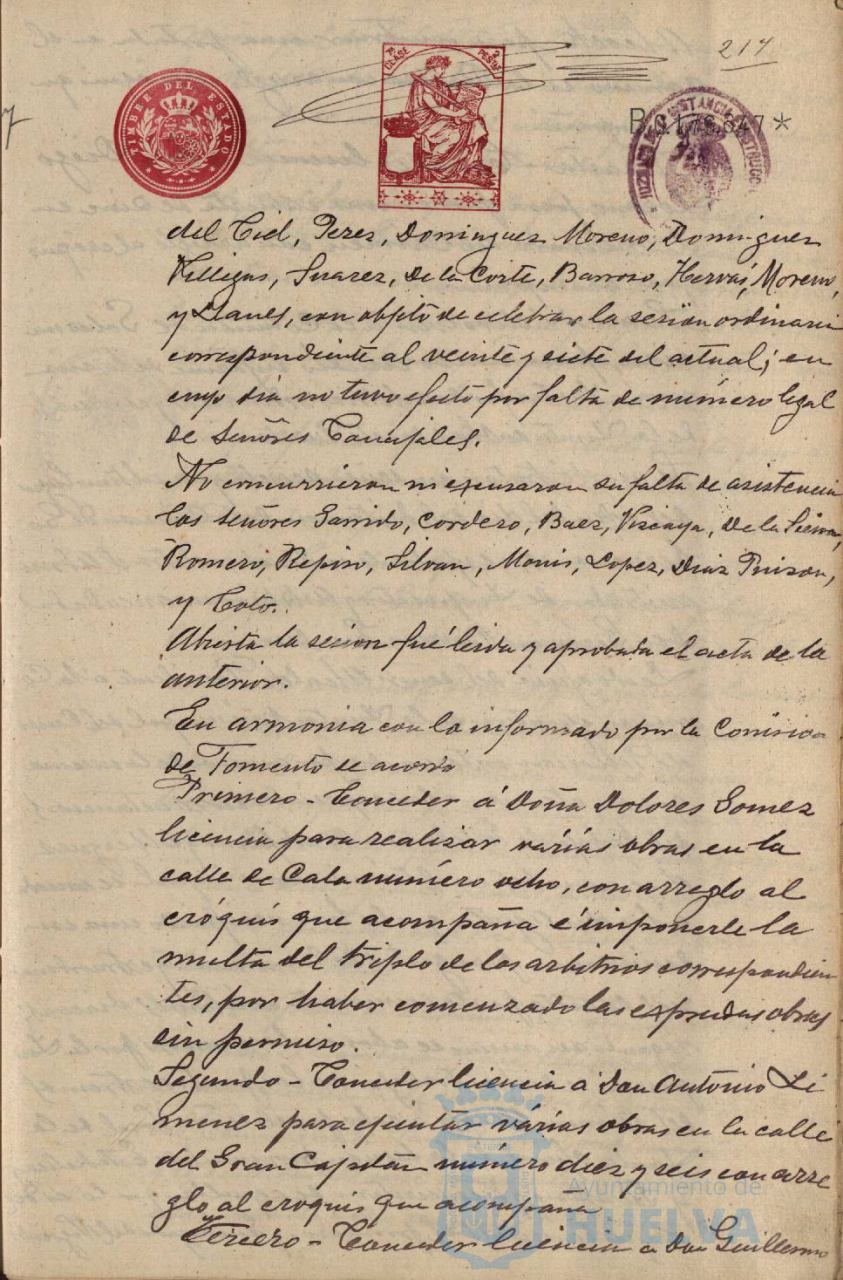 217
TIMBRE DEL ESTADO
7ª CLASE 2 PESTAS
B.0.178.647*
JUZGADO DE INSTANCIA INSTRUCC
del Cid, Perez, Dominguez Moreno, Dominguez
Villegas, Suarez, De la Corte, Barroso, Hervás, Moreno,
y Llanes, con objeto de celebrar la sesion ordinaria
correspondiente al veinte y siete del actual; en
cuyo dia no tuvo efecto por falta de número legal
de Señores Concejales.
No concurrieron ni excusaron su falta de asistencia
los señores Garrido, Cordero, Baez, Vizcaya, De la Sierra,
Romero, Repiso, Silvan, Monis, Lopez, Diaz
y Coto.
Abierta la sesion fué leida y aprobada el acta de la
anterior.
En armonia con lo informado por la Comision
de Fomento se acordó
Primero - Conceder á Doña Dolores Gomez
licencia para realizar várias obras en la
calle de Cala número ocho, con arreglo al
cróquis que acompaña é imponerle la
multa del triplo de los arbitrios correspondien
tes, por haber comenzado las expresadas obras
sin permiso.
Segundo - Conceder licencia á Don António Li
menez para ejecutar várias obras en la calle
del Gran Capitán número diez y seis con arre
glo al croquis que acompaña
Tercero - Conceder licencia a Don Guillermo
Ayuntamiento de
HUELVA